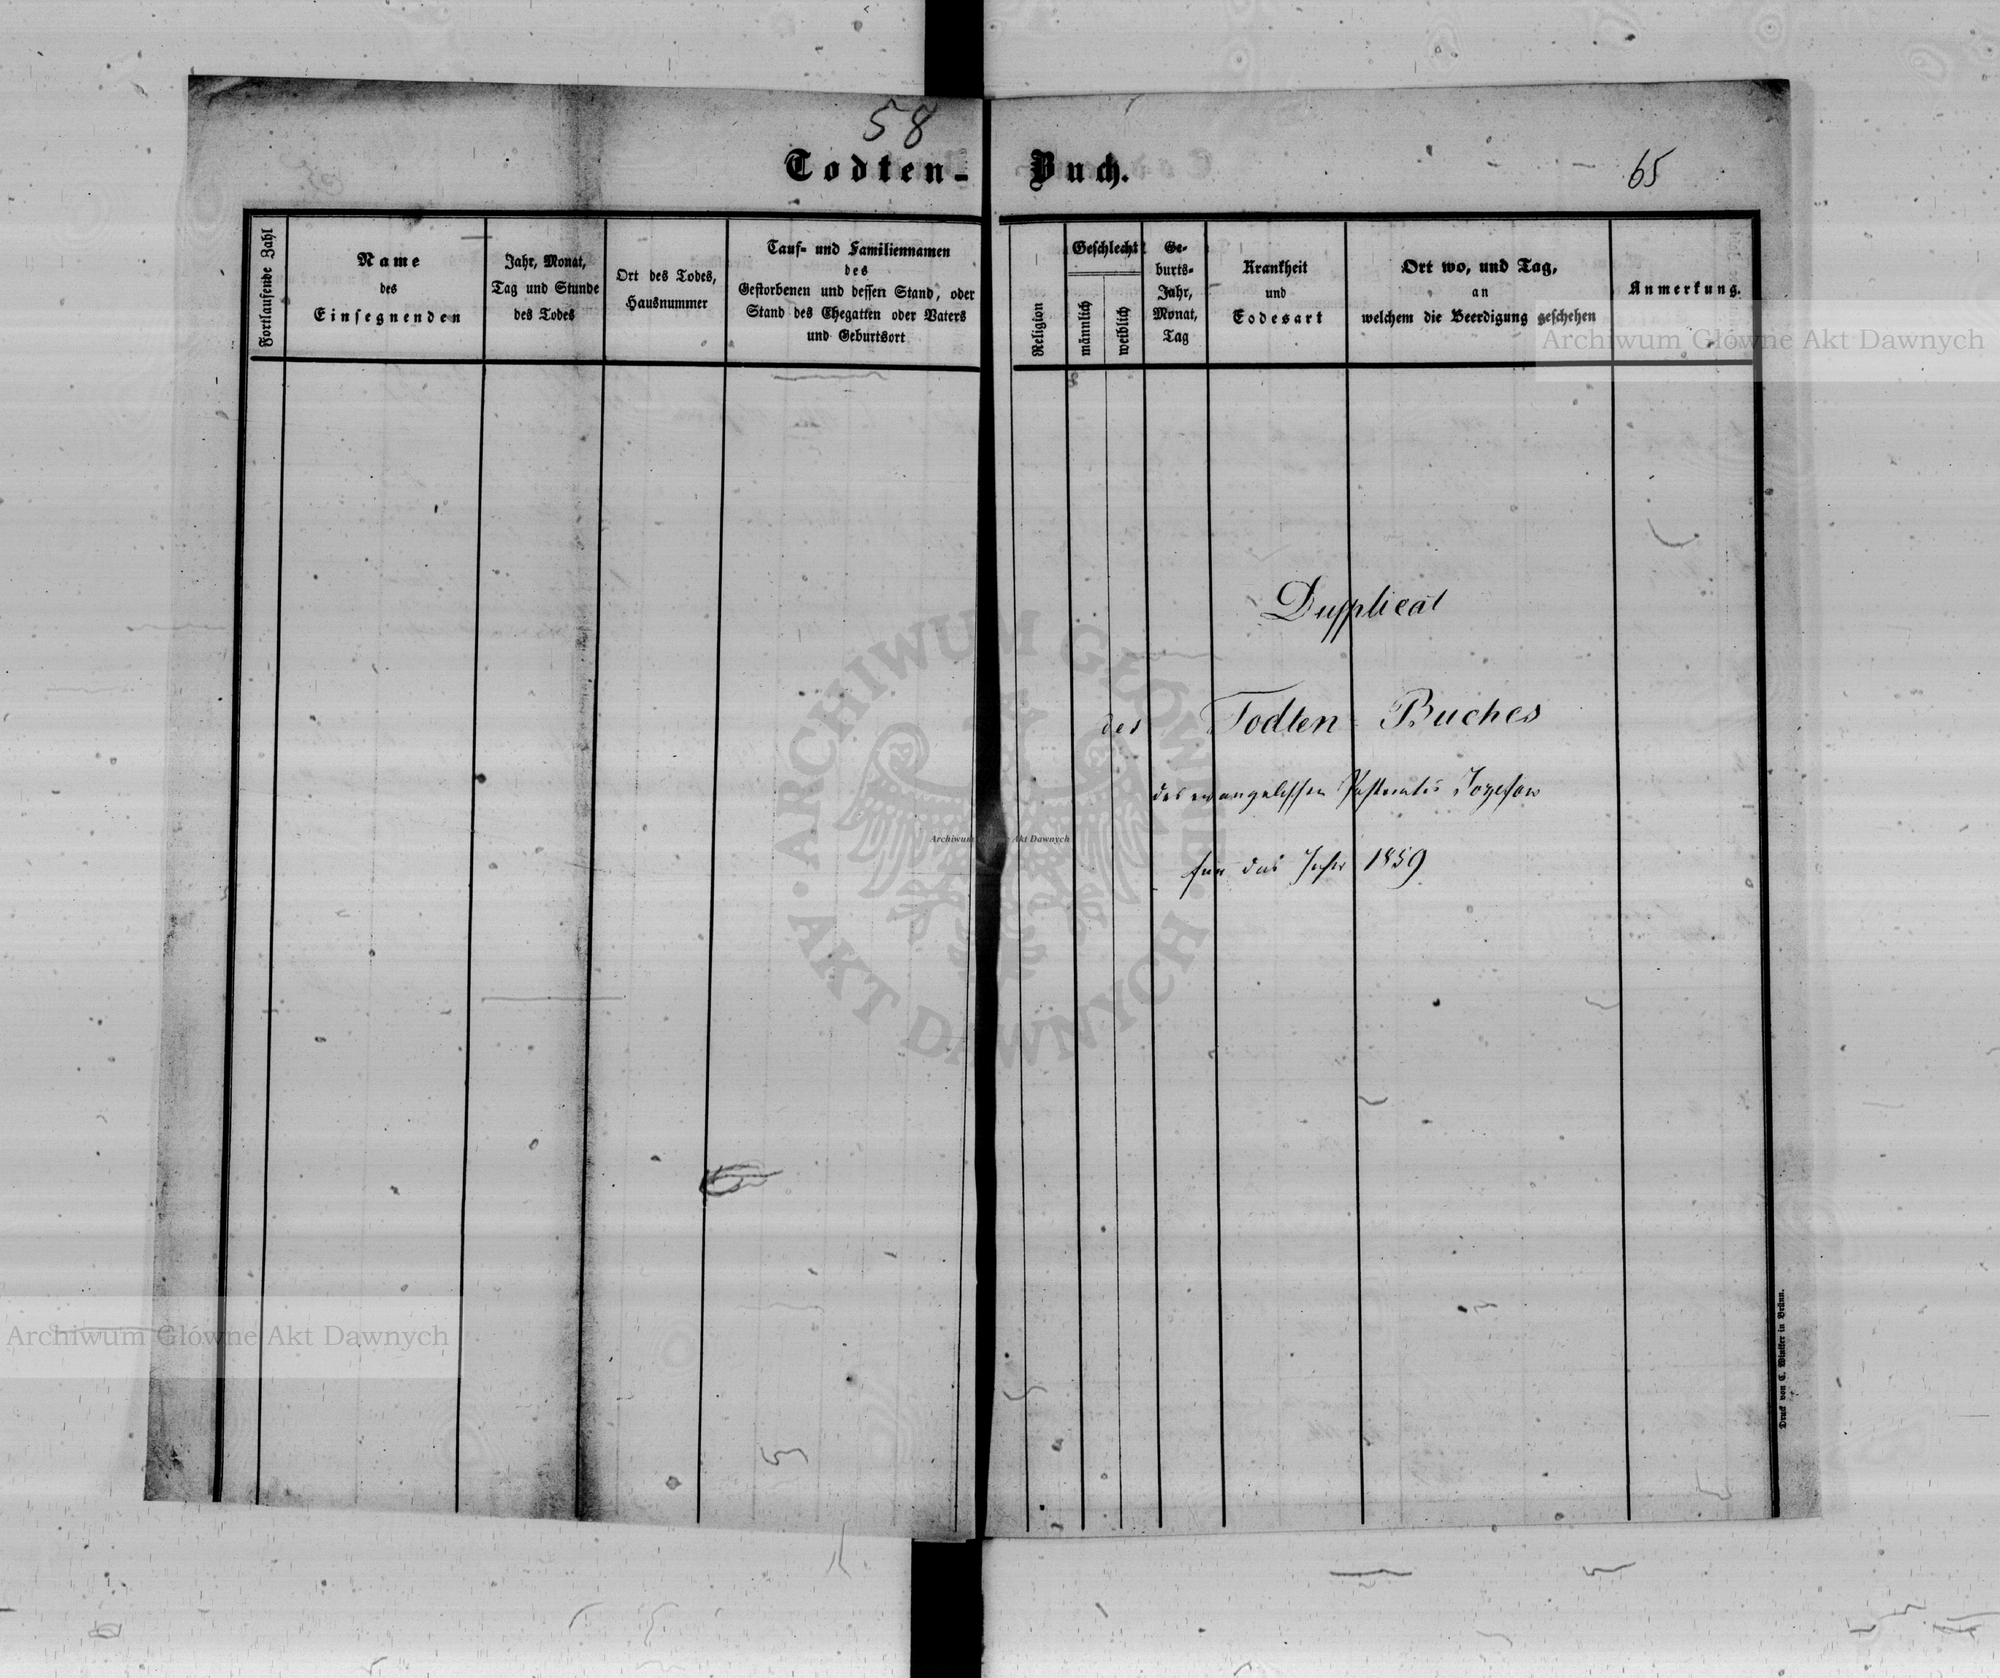 58
Todten-Buch.
65
Fortlaufende Zahl
Name
des
Einsegnenden
Jahr, Monat,
Tag und Stunde
des Todes
Ort des Todes,
Hausnummer
Tauf- und Familiennamen
des
Gestorbenen und dessen Stand, oder
Stand des Ehegatten oder Vaters
und Geburtsort
Religion
Geschlecht
männlich
weiblich
Ge-
burts-
Jahr,
Monat,
Tag
Krankheit
und
Todesart
Ort wo, und Tag,
an
welchem die Beerdigung geschehen
Anmerkung.
Archiwum Główne Akt Dawnych
Dupplicat
des Todten-Buches
des evangelischen Pastorates
für das Jahr 1859
ARCHIWUM GŁÓWNE
AKT DAWNYCH
Archiwum Główne Akt Dawnych
Archiwum Główne Akt Dawnych
Druck von C. Winiker in Brünn.